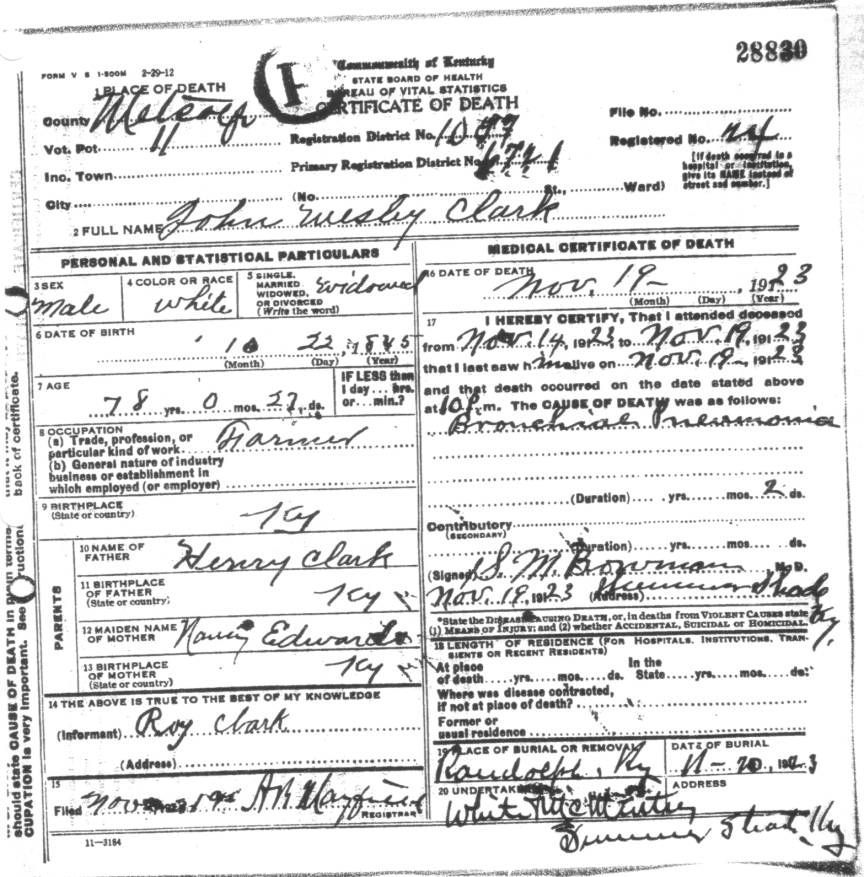 28830
FORM V S 1-500M 2-29-12
Commonwealth of Kentucky
STATE BOARD OF HEALTH
BUREAU OF VITAL STATISTICS
CERTIFICATE OF DEATH
1 PLACE OF DEATH
County Metcalf
Vot. Pct. 11
Inc. Town
City
Registration District No.
Primary Registration District No.
(No. St., Ward)
File No.
Registered No. 24
[If death occurred in a
hospital or institution,
give its NAME instead of
street and number.]
2 FULL NAME John Wesley Clark
PERSONAL AND STATISTICAL PARTICULARS
3 SEX
Male
4 COLOR OR RACE
White
5 SINGLE,
MARRIED
WIDOWED,
OR DIVORCED
(Write the word)
Widowed
6 DATE OF BIRTH
10 22, 1845
(Month) (Day) (Year)
7 AGE
78 yrs. 0 mos. 27 ds.
IF LESS than
1 day... hrs.
or... min.?
8 OCCUPATION
(a) Trade, profession, or
particular kind of work Farmer
(b) General nature of industry
business or establishment in
which employed (or employer)
9 BIRTHPLACE
(State or country)
Ky
PARENTS
10 NAME OF
FATHER
Henry Clark
11 BIRTHPLACE
OF FATHER
(State or country)
Ky
12 MAIDEN NAME
OF MOTHER
Nancy Edwards
13 BIRTHPLACE
OF MOTHER
(State or country)
Ky
14 THE ABOVE IS TRUE TO THE BEST OF MY KNOWLEDGE
(Informant) Roy Clark
(Address)
15
Filed Nov
REGISTRAR
11-3184
MEDICAL CERTIFICATE OF DEATH
16 DATE OF DEATH
Nov, 19-, 1923
(Month) (Day) (Year)
17 I HEREBY CERTIFY, That I attended deceased
from Nov. 14, 1923, to Nov. 19, 1923
that I last saw him alive on Nov. 19-, 1923,
and that death occurred on the date stated above
at 10 P.m. The CAUSE OF DEATH was as follows:
Bronchial Pneumonia
(Duration) yrs. mos. 2 ds.
Contributory
(SECONDARY)
(Duration) yrs. mos. ds.
(Signed) S. M. Bowman, M.D.
Nov. 19, 1923 (Address) Summer Shade
Ky.
*State the DISEASE CAUSING DEATH, or, in deaths from VIOLENT CAUSES state
(1) MEANS OF INJURY; and (2) whether ACCIDENTAL, SUICIDAL or HOMICIDAL.
18 LENGTH OF RESIDENCE (FOR HOSPITALS, INSTITUTIONS, TRAN-
SIENTS OR RECENT RESIDENTS)
At place
of death yrs. mos. ds.
In the
State yrs. mos. ds.
Where was disease contracted,
if not at place of death?
Former or
usual residence
19 PLACE OF BURIAL OR REMOVAL
Randolph, Ky
DATE OF BURIAL
11-20, 1923
20 UNDERTAKER
White
ADDRESS
Summer Shade, Ky
should state CAUSE OF DEATH in plain terms
CUPATION is very important. See
back of certificate.